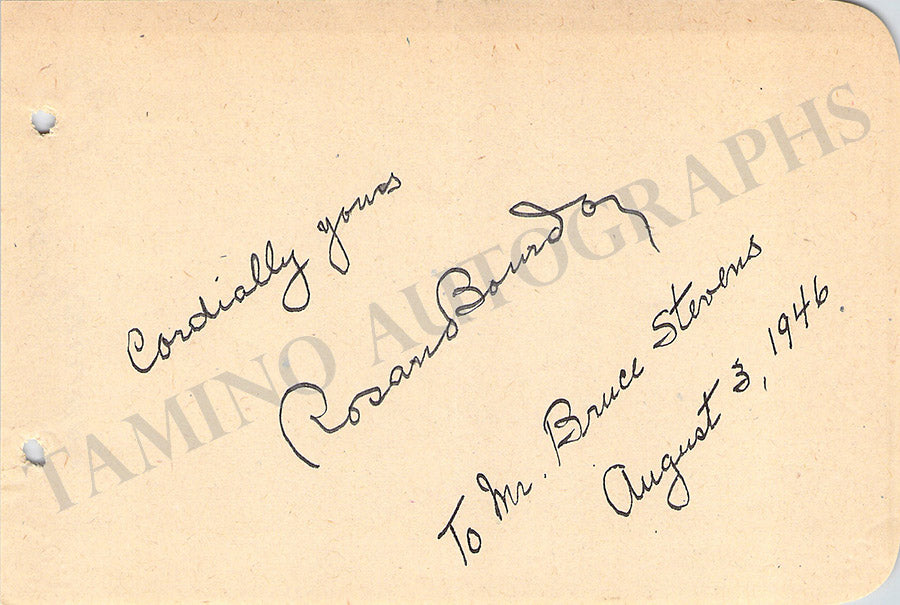 Cordially yours
Rosario Bourdon
To Mr. Bruce Stevens
August 3, 1946.
TAMINO AUTOGRAPHS